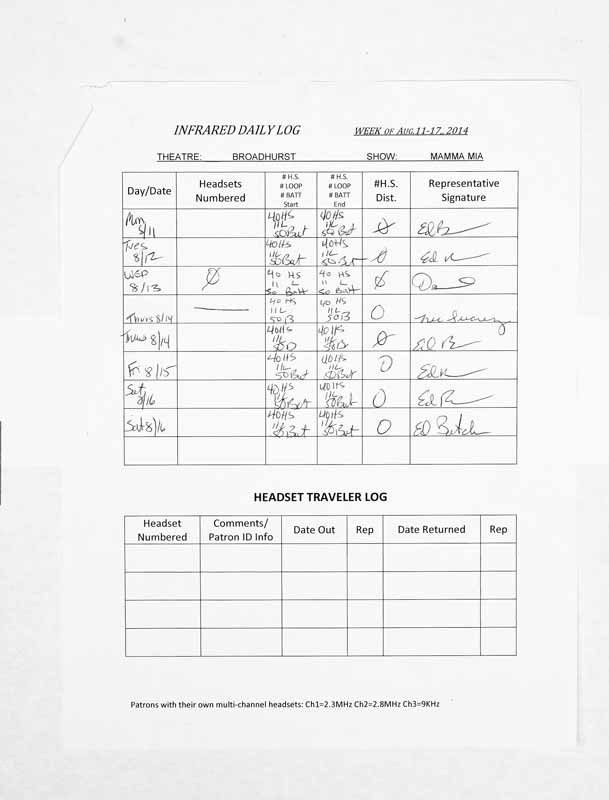 INFRARED DAILY LOG WEEK OF AUG.11-17, 2014
THEATRE: BROADHURST SHOW: MAMMA MIA
Day/Date
Headsets
Numbered
# H.S.
# LOOP
# BATT
Start
# H.S.
# LOOP
# BATT
End
#H.S.
Dist.
Representative
Signature
Mon
8/11
40HS
11L
50Bat
40HS
11L
50Bat
0
Ed B
Tues
8/12
40HS
11L
50Bat
40HS
11L
50Bat
0
Ed
WED
8/13
0
40 HS
11 L
50 Batt
40 HS
11 L
50 Batt
0
Thurs 8/14
40 HS
11 L
50 B
40 HS
11 L
50 B
0
Suarez
Thurs 8/14
40HS
11L
40HS
11L
50B
0
Ed B
Fri 8/15
40HS
11L
50Bat
40HS
11L
50Bat
0
Ed
Sat
8/16
40HS
11L
50Bat
40HS
11L
50Bat
0
Ed
Sat 8/16
40HS
11L
50Bat
40HS
11L
50Bat
0
ED
HEADSET TRAVELER LOG
Headset
Numbered
Comments/
Patron ID Info
Date Out
Rep
Date Returned
Rep
Patrons with their own multi-channel headsets: Ch1=2.3MHz Ch2=2.8MHz Ch3=9KHz